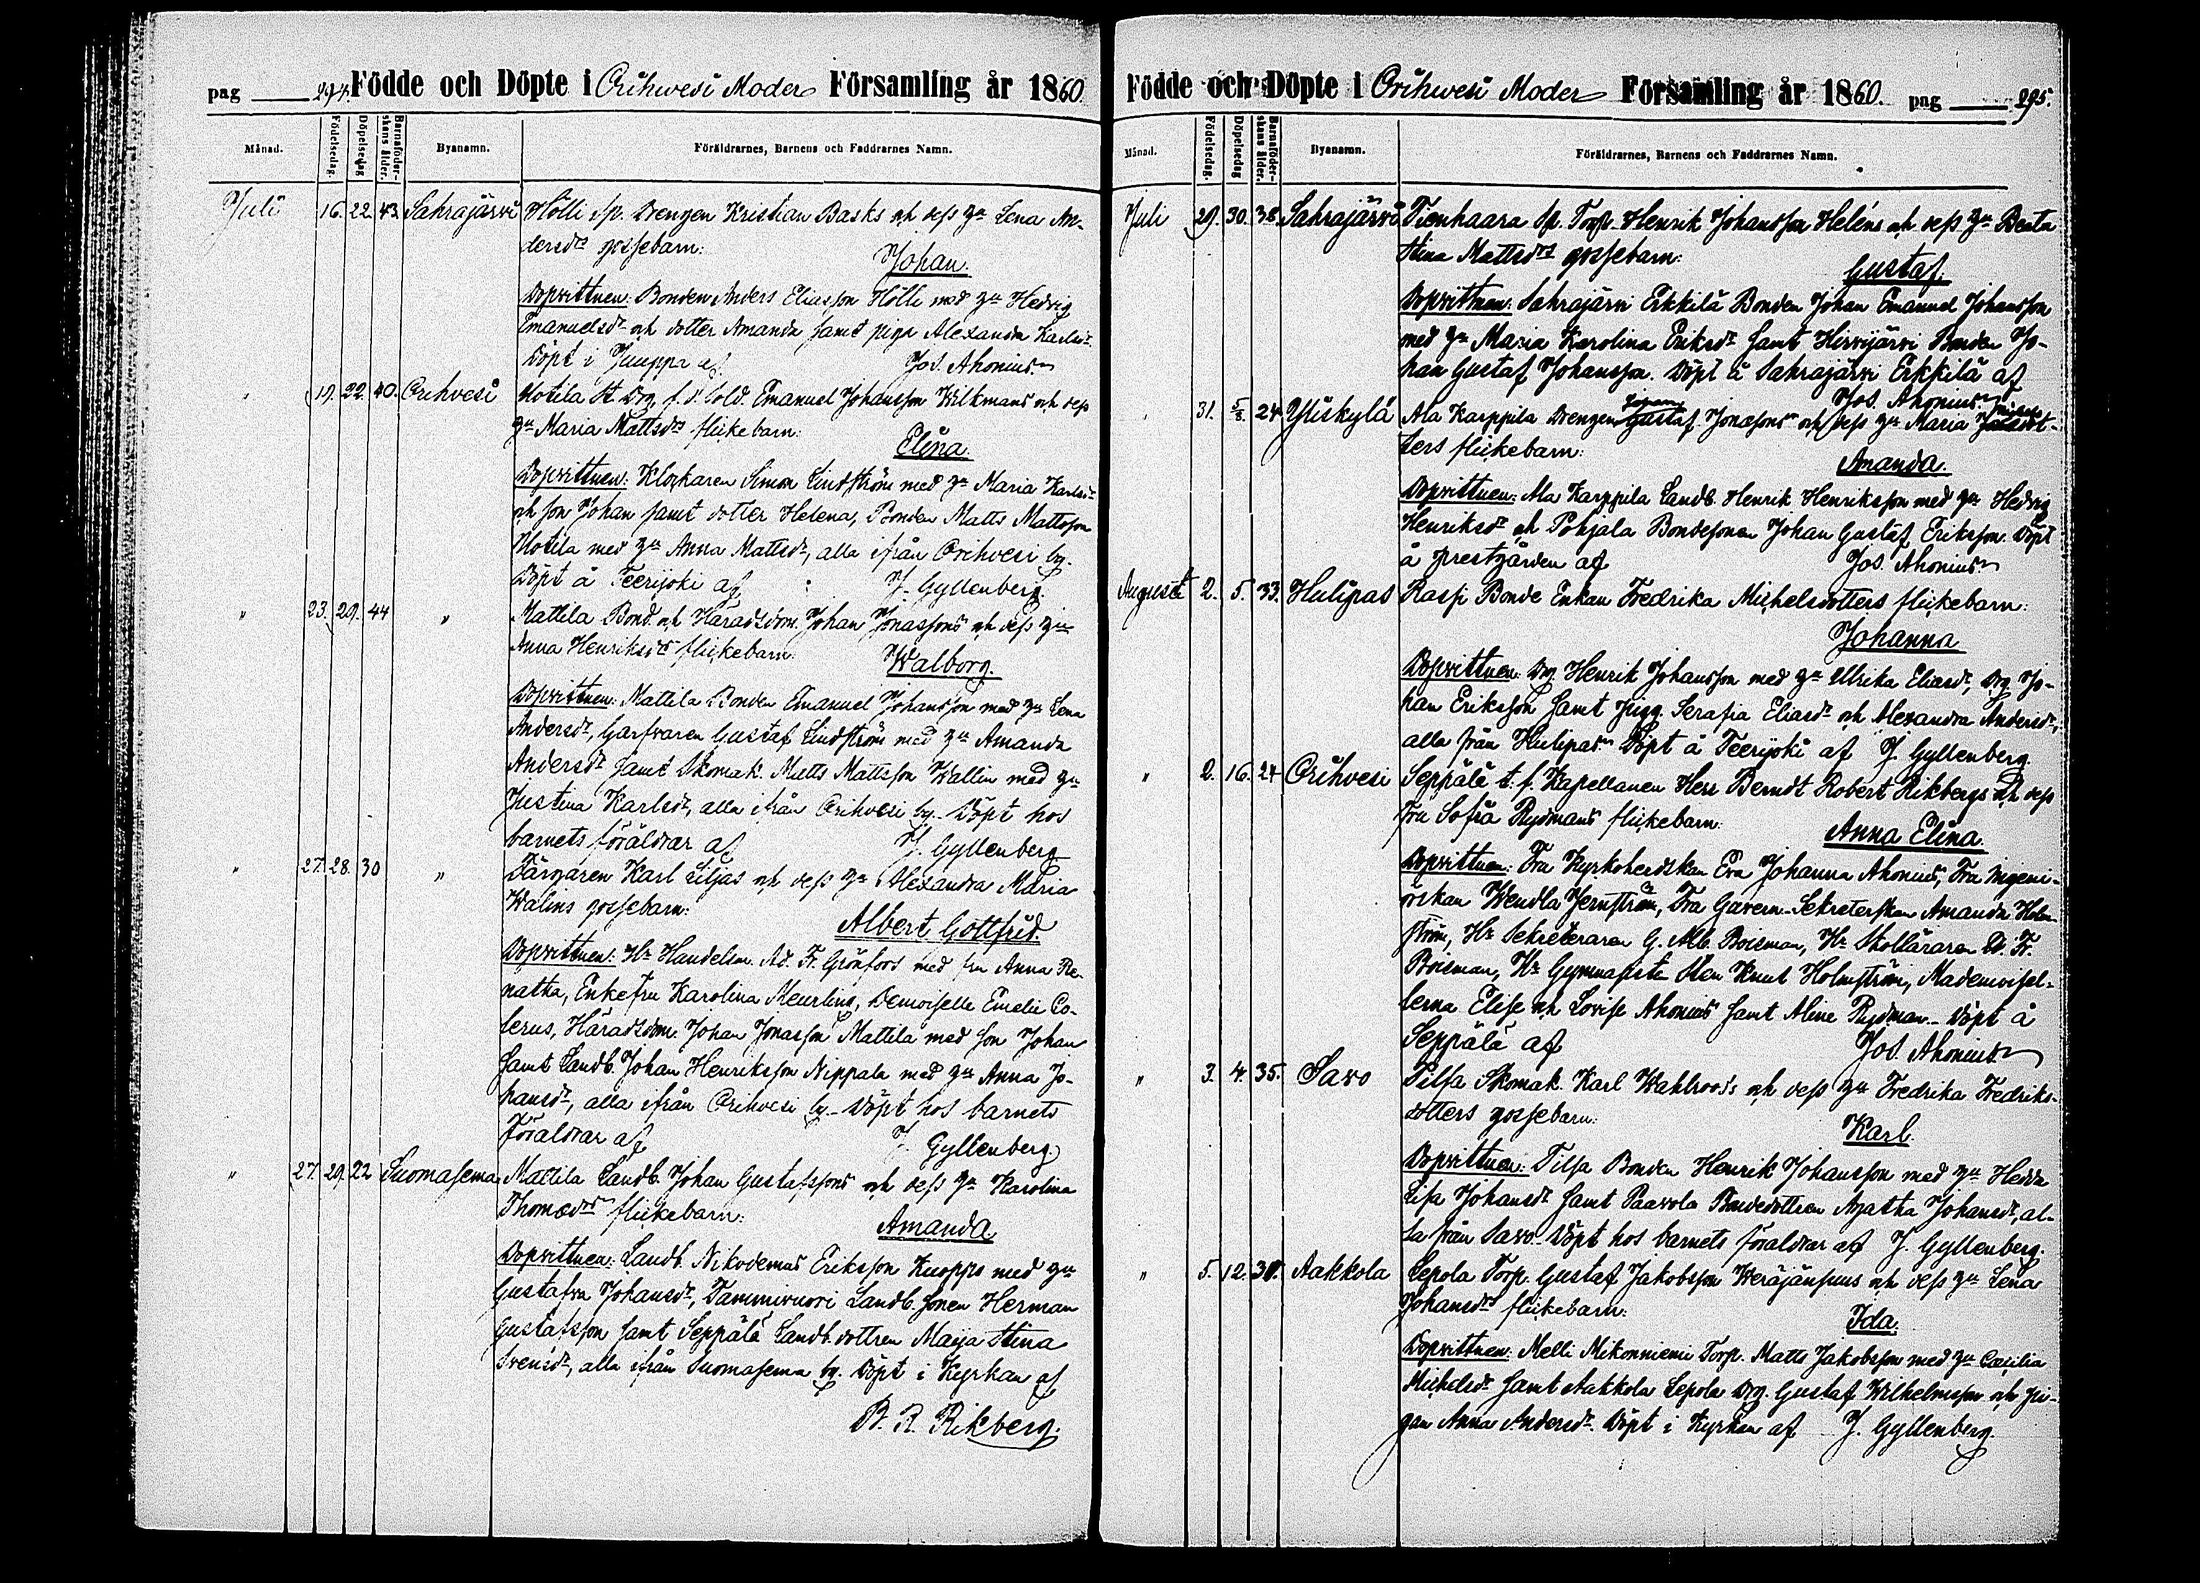 pag 294. Födde och Döpte i Orihwesi Moder Församling år 1860.
Månad. Födelsedag. Döpelsedag Barnaföderskans ålder. Byanamn. Föräldrarnes, Barnens och Faddrarnes Namn.
Juli 16. 22. 43. Sahrajärvi Hölli Sp. Drengen Kristian Basks och dess Hu Lena An-
dersdrs gossebarn:
Johan.
Dopvittnen: Bonden Anders Eliasson Hölli med Hu Hedvig
Emanuelsdr och dotter Amanda samt pigan Alexandra Karlsdr.
Döpt i Juuppa af Jos. Ahonius
" 19. 22. 40. Orihvesi Motila St Drg f. d. Sold. Emanuel Johansson Wilkmans och dess
Hu Maria Mattsdrs flickebarn:
Elina.
Dopvittnen: Klockaren Simon Lindström med Hu Maria Karlsdr
och son Johan samt dotter Helena, Bonden Matts Mattsson
Motila med Hu Anna Mattsdr, alla ifrån Orihvesi by.
Döpt å Teerijoki af J. Gyllenberg.
" 23. 29. 44 " Mattila Bond. och Häradsdom. Johan Jonassons och dess Hu
Anna Henriksdrs flickebarn:
Walborg.
Dopvittnen: Mattila Bonden Emanuel Johansson med Hu Lena
Andersdr, Garfvaren Gustaf Lindström med Hu Amanda
Andersdr samt Skomak. Matts Mattsson Wallin med Hu
Justina Karlsdr, alla ifrån Orihvesi by. Döpt hos
barnets föräldrar af J. Gyllenberg
" 27. 28. 30 " Färgaren Karl Liljas och dess Hu Alexandra Maria
Walins gossebarn:
Albert Gottfrid.
Dopvittnen: Hr Handelsm. Ad. Fr. Grönfors med fru Anna Re-
natha, Enkefru Karolina Meurling, Demoiselle Emelie Co-
lerus, Häradsdom. Johan Jonasson Mattila med son Johan
samt Landb. Johan Henriksson Nippala med Hu Anna Jo-
hansdr, alla ifrån Orihvesi by. Döpt hos barnets
föräldrar af J. Gyllenberg
" 27. 29. 22 Suomasema Mattila Landb. Johan Gustafssons och dess Hu Karolina
Thomædrs flickebarn:
Amanda.
Dopvittnen: Landb. Nikodemus Eriksson Knoppi med Hu
Gustafva Johansdr, Tammivuori Landb. sonen Herman
Gustafsson samt Seppälä Landb. dottren Maija Stina
Svensdr, alla ifrån Suomasema by. Döpt i Kyrkan af
B. R. Rikberg.
Födde och Döpte i Orihwesi Moder Församling år 1860. pag 295.
Månad. Födelsedag. Döpelsedag Barnaföderskans ålder. Byanamn. Föräldrarnes, Barnens och Faddrarnes Namn.
Juli 29. 30. 38. Sahrajärvi Tienhaara Sp. Torp. Henrik Johansson Heléns och dess Hu Beata
Stina Mattsdrs gossebarn:
Gustaf.
Dopvittnen: Sahrajärvi Erkkilä Bonden Johan Emanuel Johansson
med Hu Maria Karolina Eriksdr samt Hirvijärvi Bonden Jo-
han Gustaf Johansson. Döpt å Sahrajärvi Erkkilä af
Jos. Ahonius
" 31. 5/8. 24. Yliskylä Ala Karppila Drengen Johan Gustaf Jonæsons och dess Hu Maria
ters flickebarn:
Amanda.
Dopvittnen: Ala Karppila Landb. Henrik Henriksson med Hu Hedvig
Henriksdr och Pohjala Bondesonen Johan Gustaf Eriksson. Döpt
å prestgården af Jos. Ahonius
Augusti 2. 5. 33. Hulipas Rasi Bonde Enkan Fredrika Michelsdotters flickebarn:
Johanna
Dopvittnen: Drg Henrik Johansson med Hu Ulrika Eliasdr, Drg Jo-
han Eriksson samt pigg. Serafia Eliasdr och Alexandra Andersdr,
alla från Hulipas. Döpt å Teerijoki af J. Gyllenberg
" 2. 16. 24 Orihvesi Seppälä t. f. Kapellanen Herr Berndt Robert Rikbergs och dess
Fru Sofia Rydmans flickebarn:
Anna Elina.
Dopvittnen: Fru Kyrkoherdskan Eva Johanna Ahonius, Fru Ingeni-
örskan Wendla Jernström, Fru Guvern. Sekreterskan Amanda Holm-
ström, Hr Sekreteraren G. Alb. Boisman, Hr Skolläraren A. Fr.
Boisman, Hr Gymnasisten Knut Holmström, Mademoisel-
lerna Elise och Lovise Ahonius samt Aline Rydman. Döpt å
Seppälä af Jos. Ahonius
" 3. 4. 35. Savo Tilsa Skomak. Karl Wahlroos's och dess Hu Fredrika Fredriks-
dotters gossebarn:
Karl.
Dopvittnen: Tilsa Bonden Henrik Johansson med Hu Hedda
Lisa Johansdr samt Paavola Bondedottren Agatha Johansdr, al-
la från Savo. Döpt hos barnets föräldrar af J. Gyllenberg.
" 5. 12. 30. Aakkola Lepola Torp. Gustaf Jakobsson Weräjänsuus och dess Hu Lena
Johansdrs flickebarn:
Ida.
Dopvittnen: Melli Mikonniemi Torp. Matts Jakobsson med Hu Cæcilia
Michelsdr samt Aakkola Lepola Drg. Gustaf Wilhelmsson och pi-
gan Anna Andersdr. Döpt i Kyrkan af J. Gyllenberg.